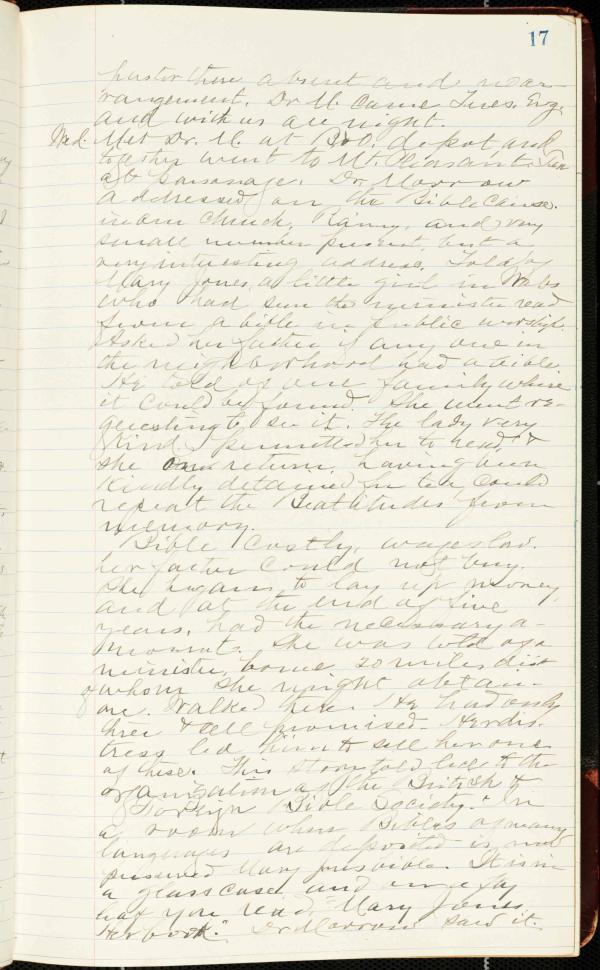 17
there absent and no ar-
rangement. Dr M. came Tues. Evg.
and with us all night.
Wed. Met Dr. M. at B&O. depot and
together went to Mt. Pleasant. Tea
at parsonage. Dr. Morrow
addressed on the Bible Cause.
in our church. Rainy, and very
small number present, but a
very interesting address. Told of
Mary Jones, a little girl in Wales
who had seen the minister read
from a bible in public worship.
Asked her father if any one in
the neighborhood had a bible.
He told of one family where
it could be found. She went re-
questing to see it. The lady very
kind, permitted her to read, &
she on return, having been
kindly detained for tea could
repeat the Beatitudes from
memory.
Bible costly, wages low.
her father could not buy.
She began to lay up money,
and at the end of five
years, had the necessary a-
mount. She was told of a
minister some 20 miles dist
of whom she might obtain
one. Walked there. He had only
three & all promised. Her dis-
tress led him to sell her one
of these. This story told led to the
organization of the "British &
Foreign Bible Society." In
a room where Bibles of many
languages are deposited is now
preserved Mary Jones bible. It is in
a glass case and on
you read, "Mary Jones,
Her book." Dr Morrow said it.